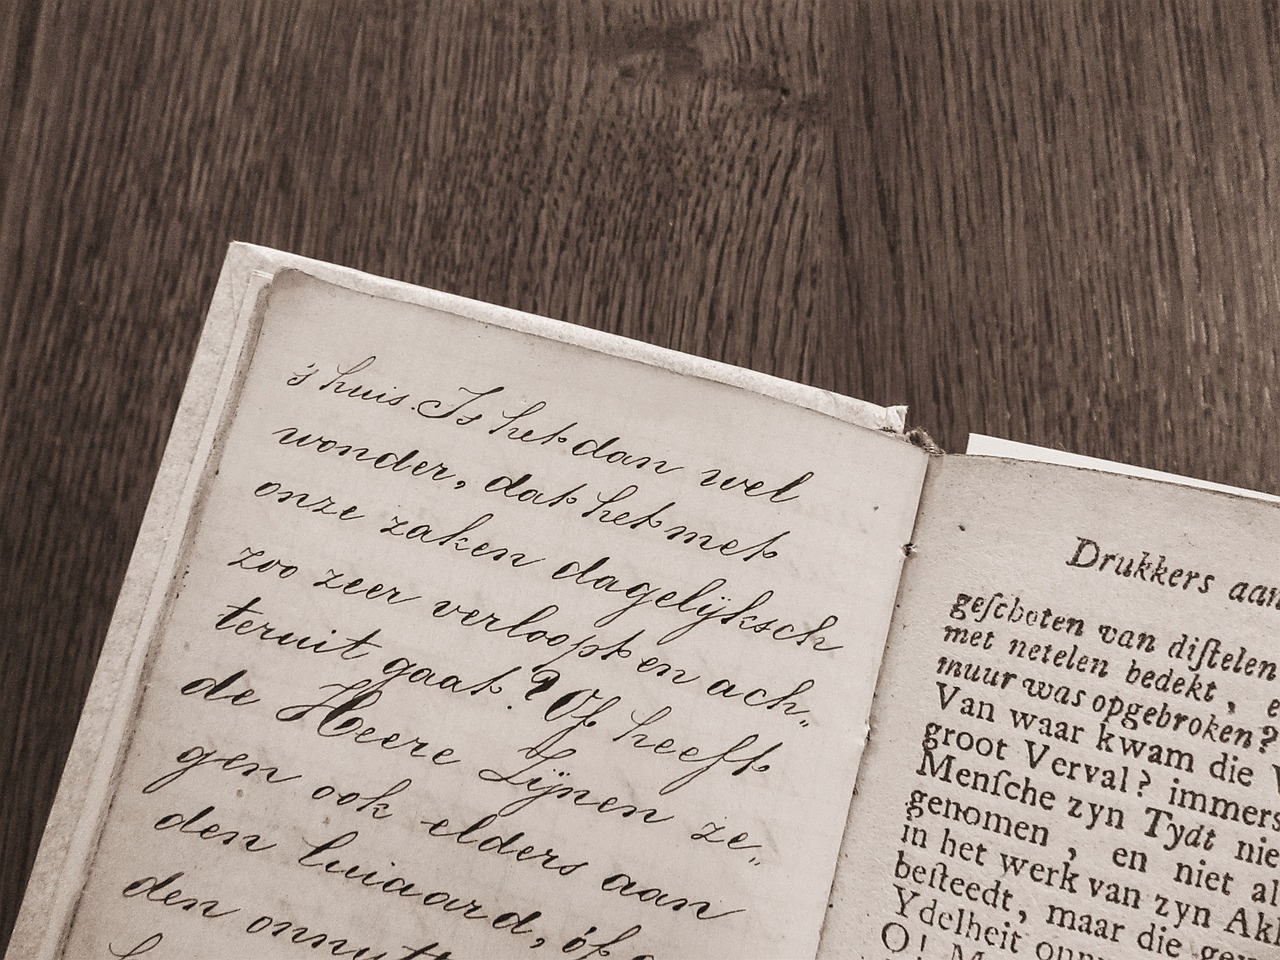 's huis. Is het dan wel
wonder, dat het met
onze zaken dagelijksch
zoo zeer verloopt en ach„
teruit gaat? Of heeft
de Heere Zijnen ze„
gen ook elders aan
den luiaard, óf
den
Drukkers aan
geſchoten van diſtelen
met netelen bedekt, e
muur was opgebroken?
Van waar kwam die
groot Verval? immers
Menſche zyn Tydt nie
genomen, en niet al
in het werk van zyn Akk
beſteedt, maar die gew
Ydelheit
O!